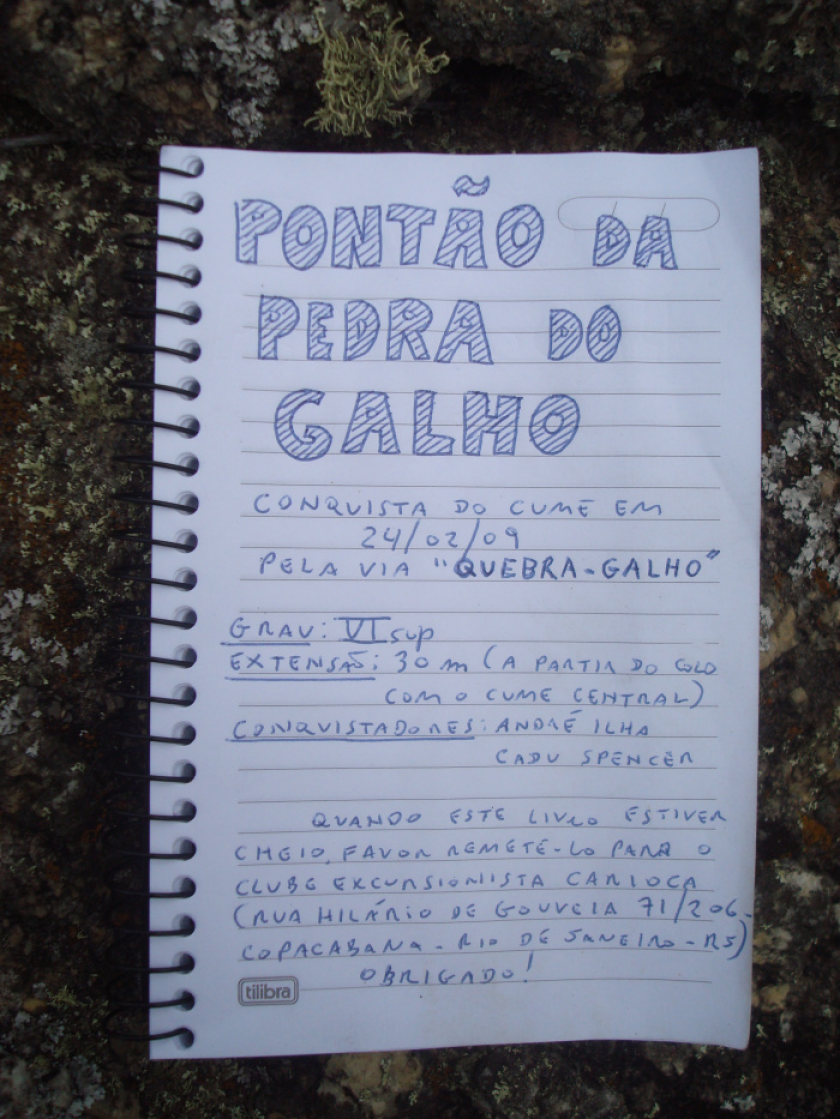 PONTÃO DA
PEDRA DO
GALHO
CONQUISTA DO CUME EM
24/02/09
PELA VIA "QUEBRA-GALHO"
GRAU: VI sup
EXTENSÃO: 30 m (A PARTIR DO COLO
COM O CUME CENTRAL)
CONQUISTADORES: ANDRÉ ILHA
CADU SPENCER
QUANDO ESTE LIVRO ESTIVER
CHEIO, FAVOR REMETÊ-LO PARA O
CLUBE EXCURSIONISTA CARIOCA
(RUA HILÁRIO DE GOUVEIA 71/206-
COPACABANA - RIO DE JANEIRO - RJ)
OBRIGADO!
tilibra